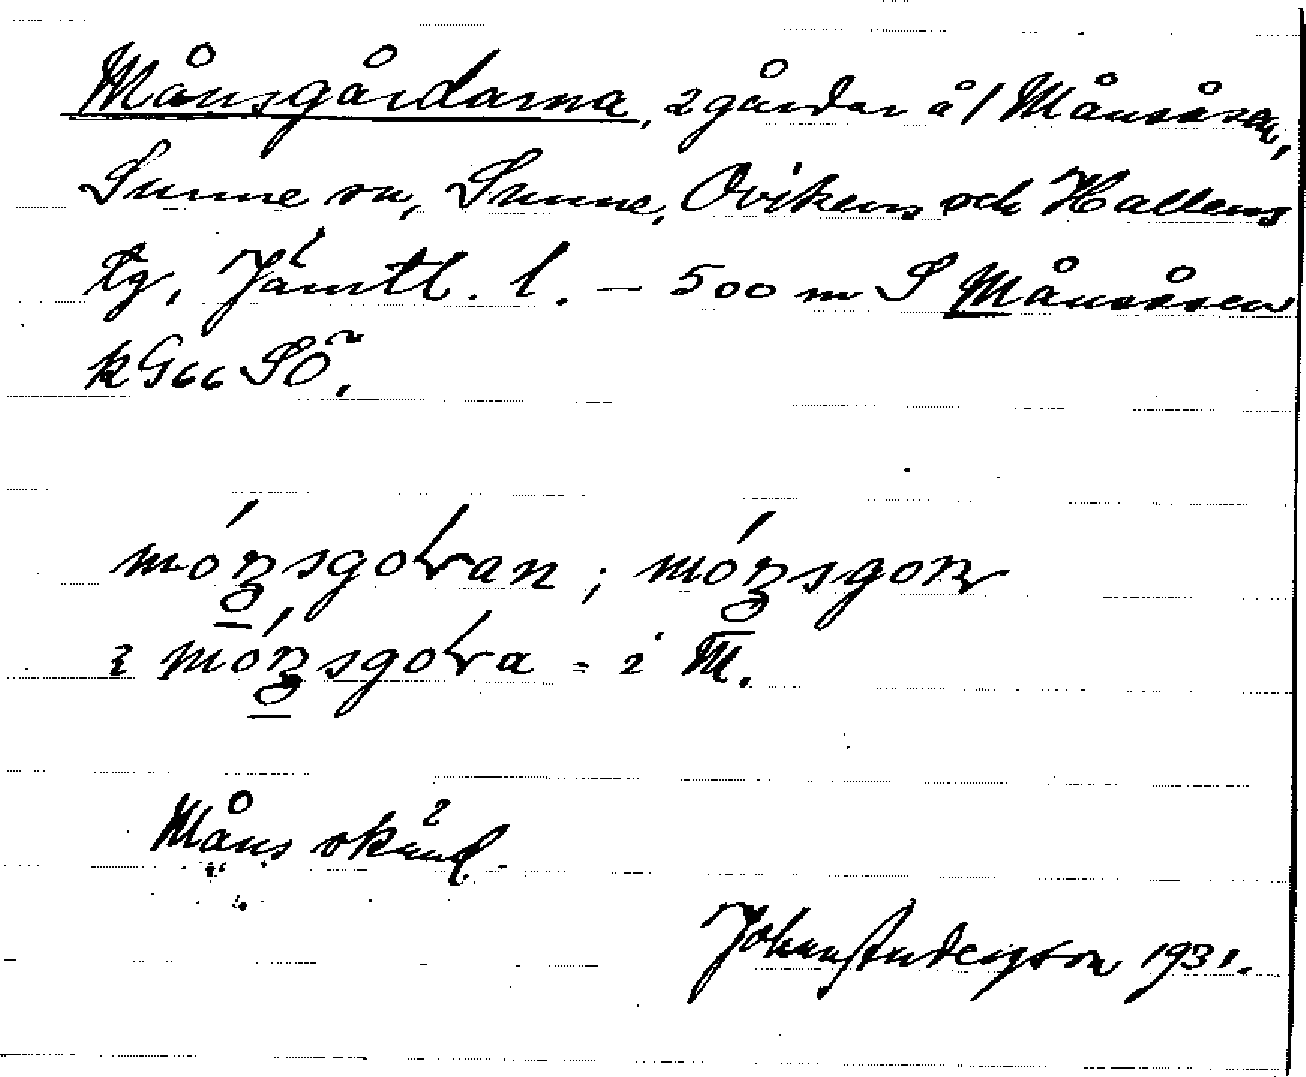 Månsgårdarna, 2 gårdar å / Månsåsen,
Sunne sn, Sunne, Ovikens och Hallens
tg, Jämtl. l. — 500 m S Månsåsen
k G66 SÖ.
i M.
Måns okänd.
Johan Anderson 1931.